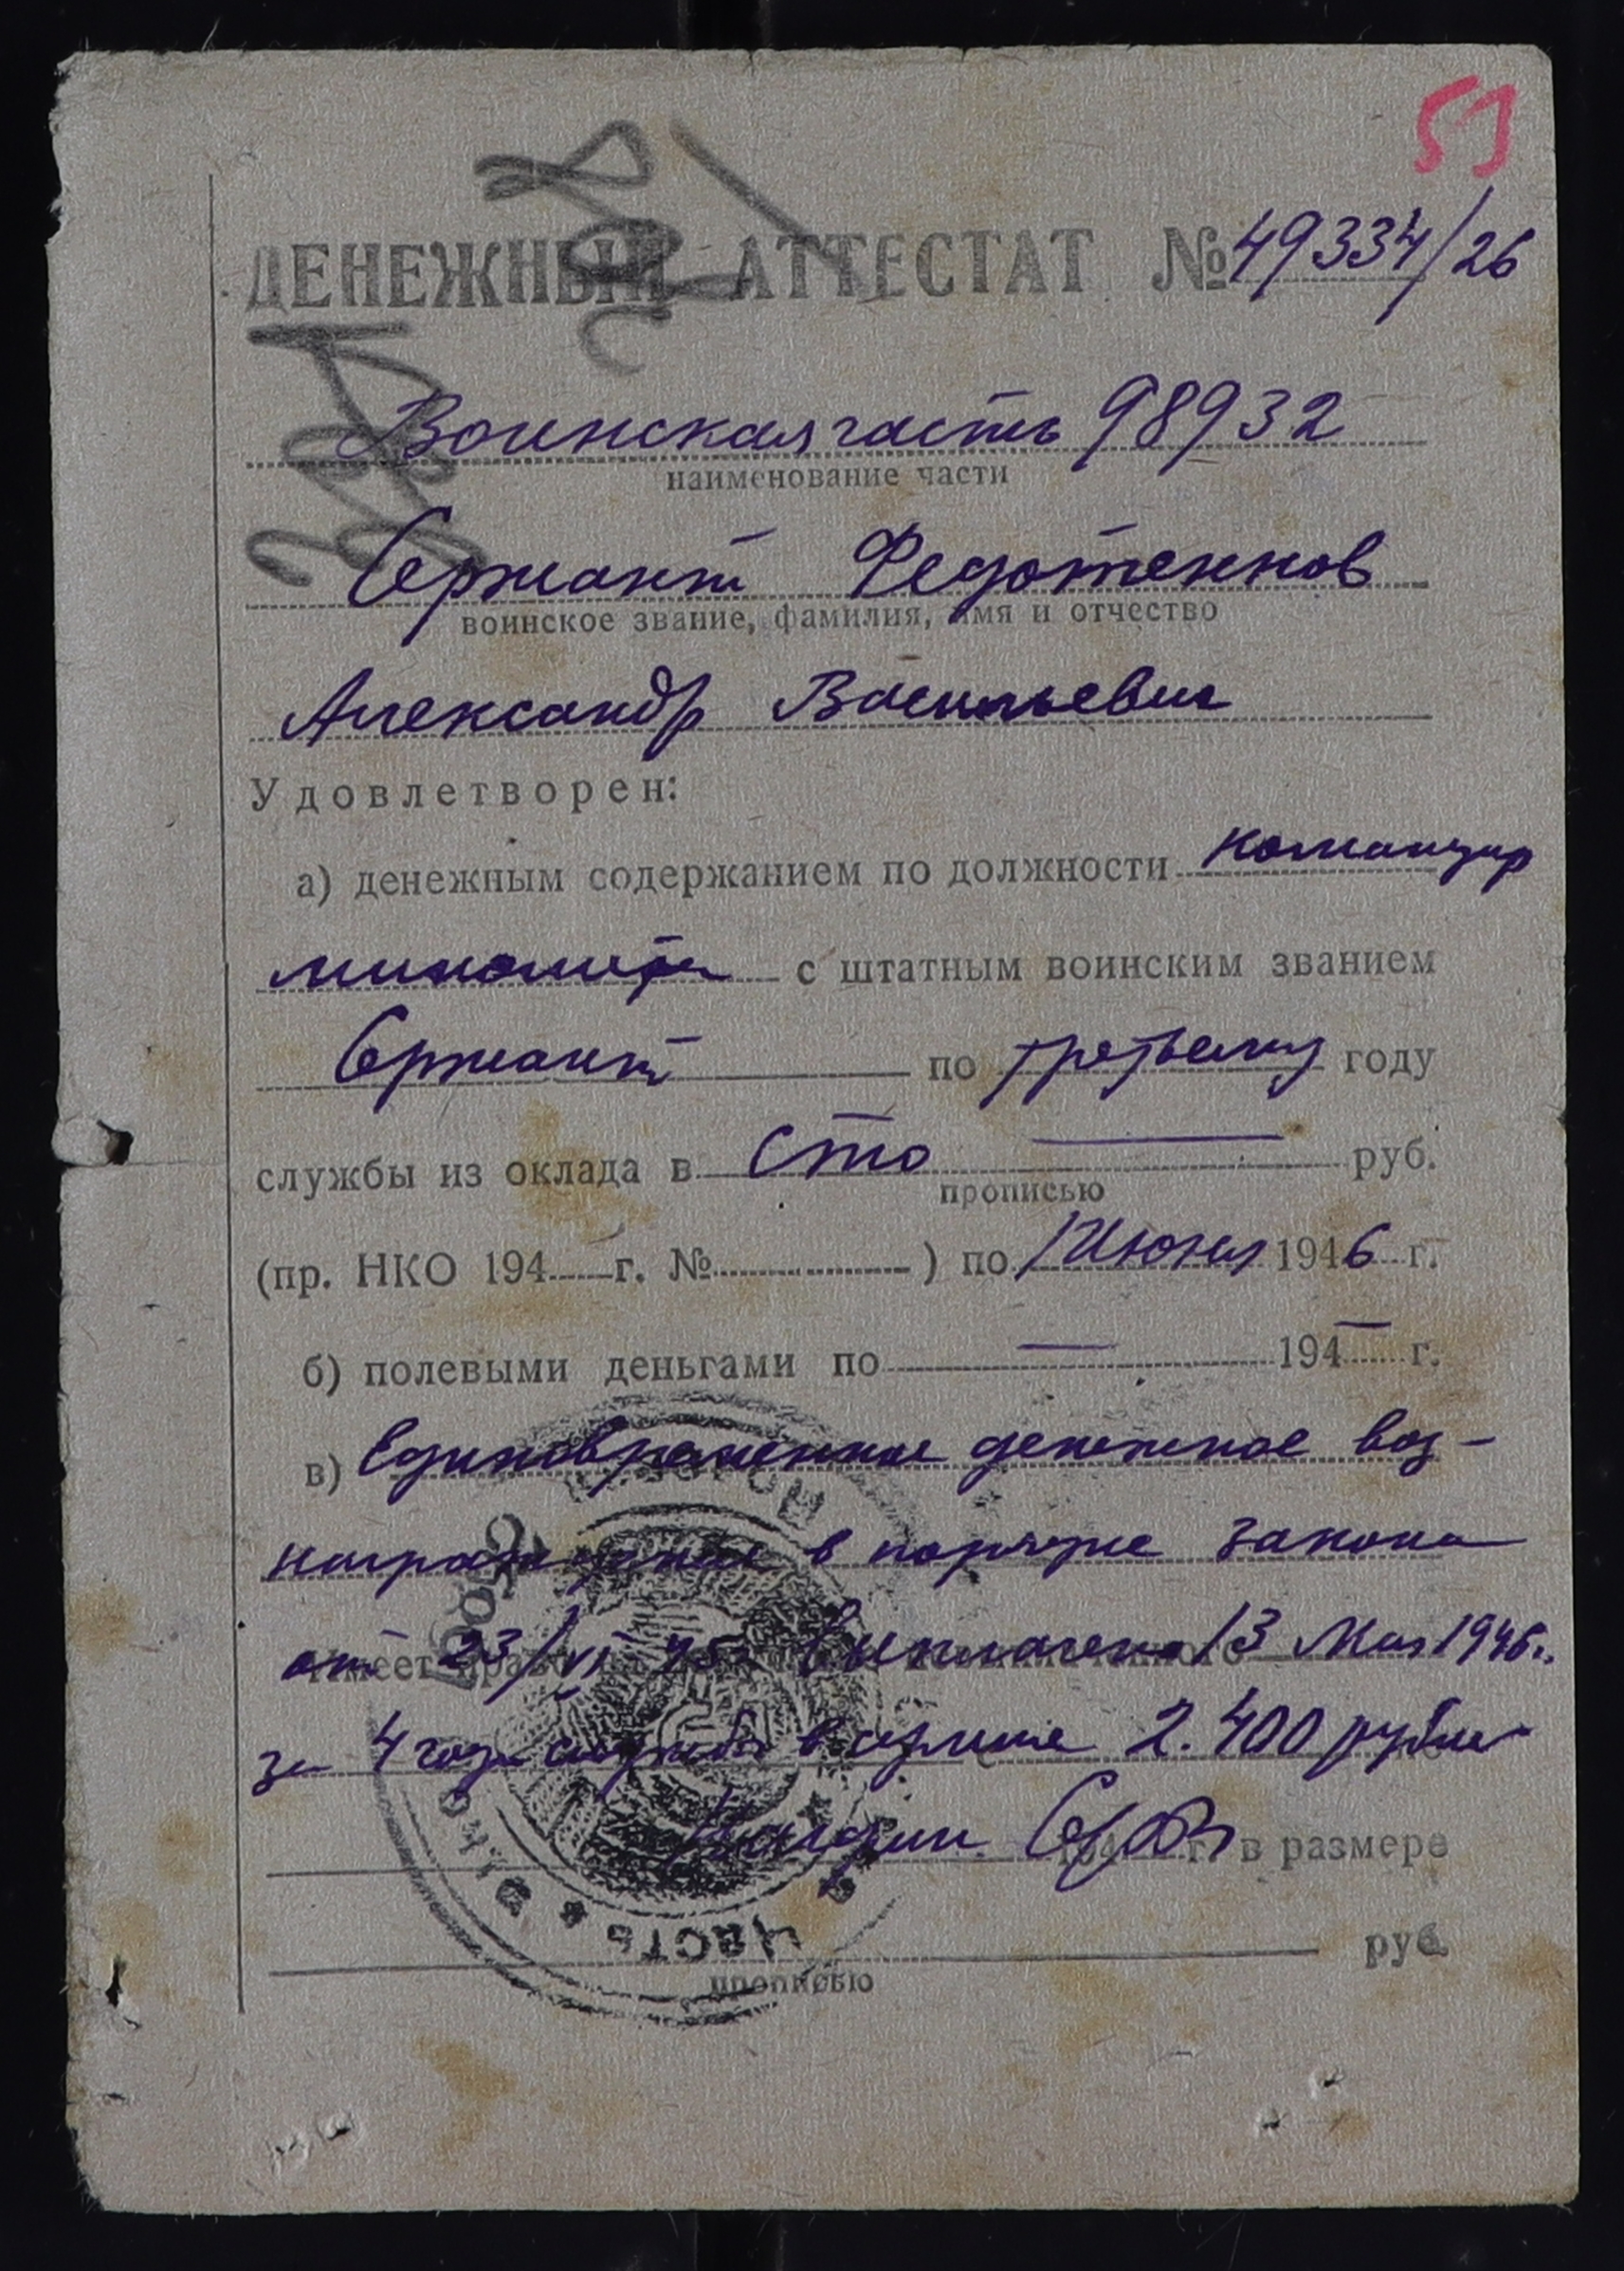 51
ДЕНЕЖНЫЙ АТТЕСТАТ № 49334/26
Воинская часть 98932
наименование части
Сержант Федотеннов
воинское звание, фамилия, имя и отчество
Александр Васильевич
Удовлетворен:
а) денежным содержанием по должности командир
миномета с штатным воинским званием
Сержант по третьему году
службы из оклада в сто руб.
прописью
(пр. НКО 194 г. № ) по 1 Июня 1946 г.
б) полевыми деньгами по — 194 — г.
в) Единовременное денежное воз-
награждение в порядке закона
от 23/VI 45 выплачено 13 Мая 1946 г.
за 4 года службы в армии 2.400 рублей
г. в размере
руб.
прописью
часть